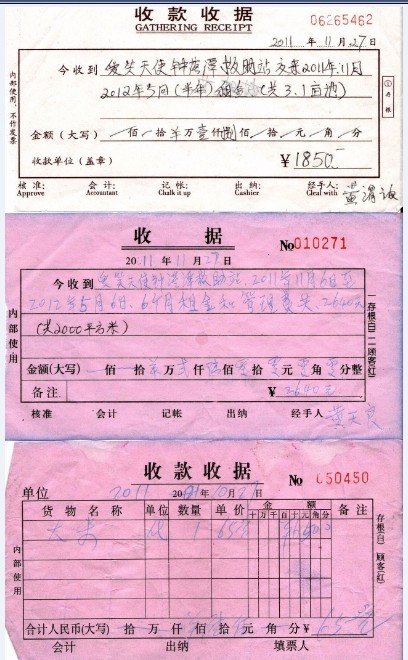 收款收据
GATHERING RECEIPT
06265462
2011年11月27日
今收到爱笑天使钟落潭救助站交来2011年11月
2012年5月(半年)租金(共3.1亩地)
金额(大写)佰拾万壹仟捌佰拾元角分
收款单位(盖章) ¥1850
核准: 会计: 记帐: 出纳: 经手人:
Approve Accountant Chalk it up Cashier Cleal with
内部使用,不作发票
①存根
收据
No 010271
2011年11月27日
今收到爱笑天使钟落潭救助站,2011年11月6日至
2012年5月6日,6个月租金和管理费共,2640元
(共2000平方米)
金额(大写)佰拾万贰仟陆佰拾元角分整
备注 ¥2640元
核准 会计 记帐 出纳 经手人
内部使用
一存根(白)二顾客(红)
收款收据
No 050450
单位 2011 20 年10月27日
货物名称 单位 数量 单价 金额 备注
十万千百十元角分
大米 1 65
合计人民币(大写)拾万仟佰拾元角分¥
会计 出纳 填票人
内部使用
存根(白) 顾客(红)